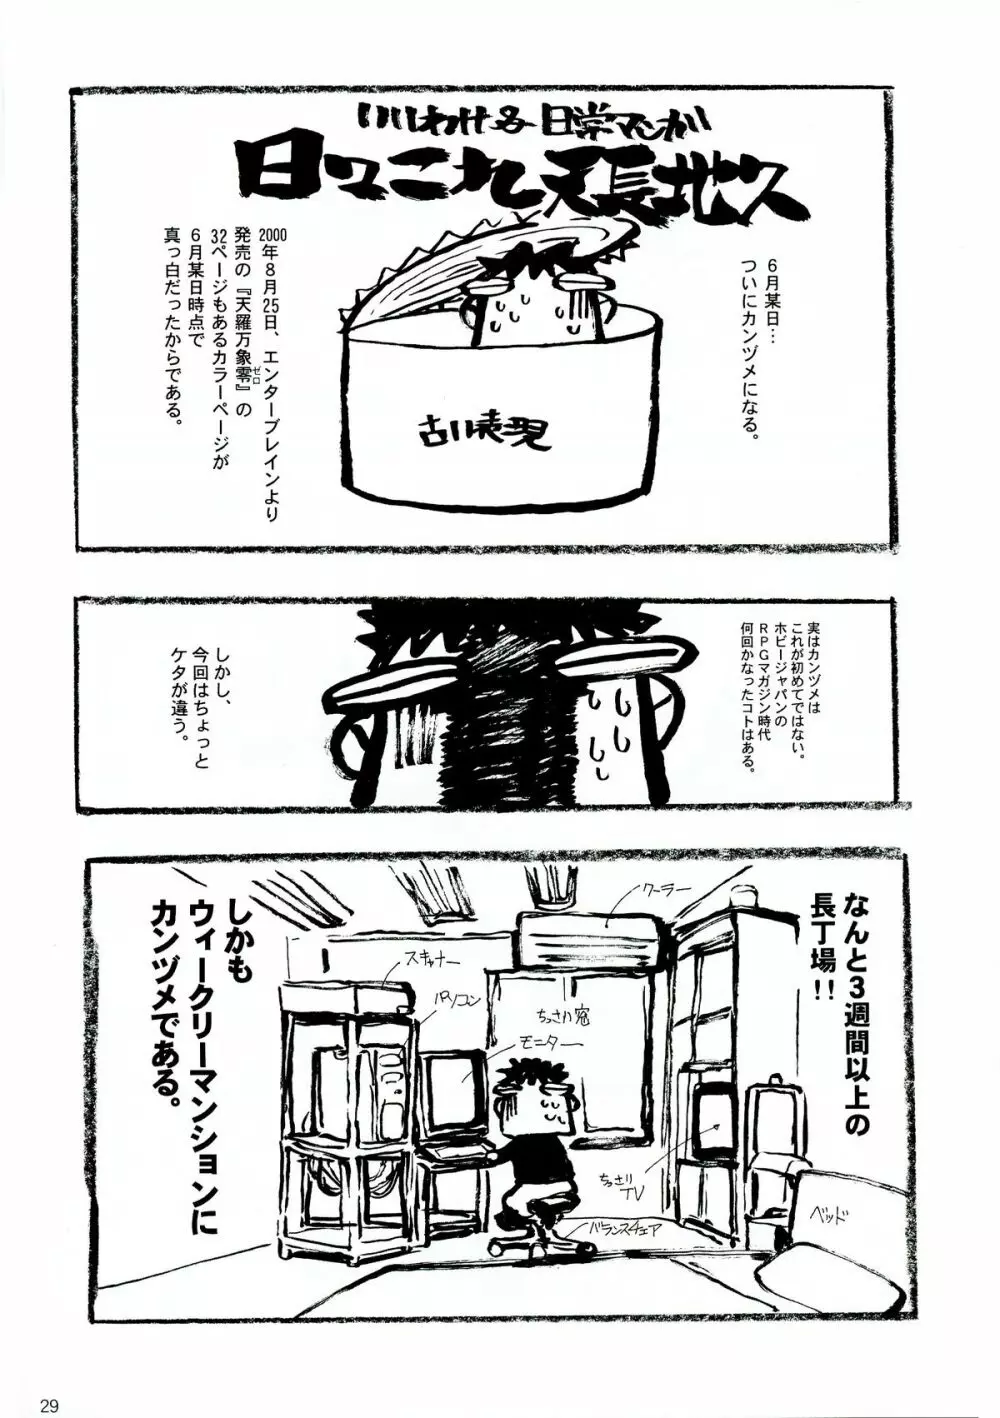 いいわけ&日常マンガ
日々これ天長地久
6月某日…
ついにカンヅメになる。
2000年8月25日、エンターブレインより
発売の『天羅万象零』の
ゼロ
32ページもあるカラーページが
6月某日時点で
真っ白だったからである。
実はカンヅメは
これが初めてではない。
ホビージャパンの
RPGマガジン時代
何回かなったコトはある。
しかし、
今回はちょっと
ケタが違う。
なんと3週間以上の
長丁場!!
クーラー
スキャナー
パソコン
ちっさい窓
モニター
ちっさい
TV
バランスチェア
ベッド
しかも
ウィークリーマンションに
カンヅメである。
29